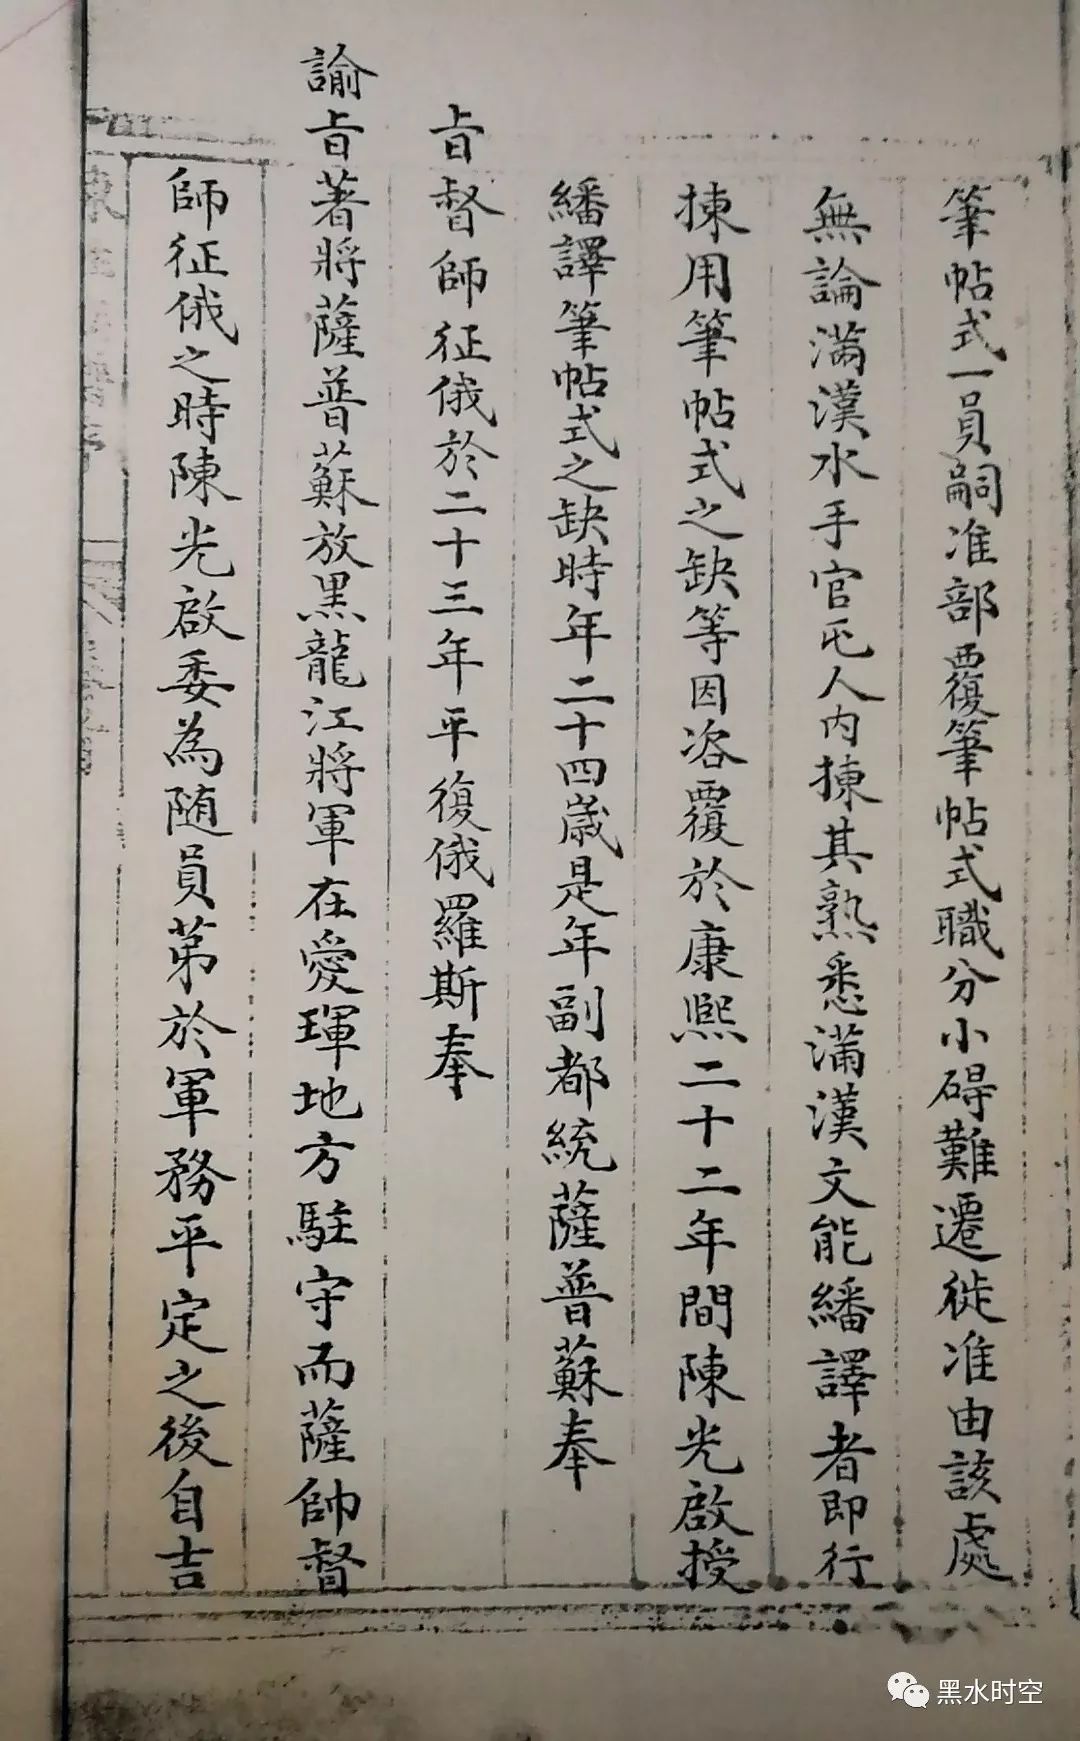 筆帖式一員嗣准部覆筆帖式職分小碍難遷徙准由該處
無論滿漢水手官屯人內揀其熟悉滿漢文能繙譯者即行
揀用筆帖式之缺等因咨覆於康熙二十二年間陳光啟授
繙譯筆帖式之缺時年二十四歲是年副都統薩普蘇奉
旨督師征俄於二十三年平復俄羅斯奉
諭旨著將薩普蘇放黑龍江將軍在愛琿地方駐守而薩帥督
師征俄之時陳光啟委為随員苐於軍務平定之後自吉
黑水时空